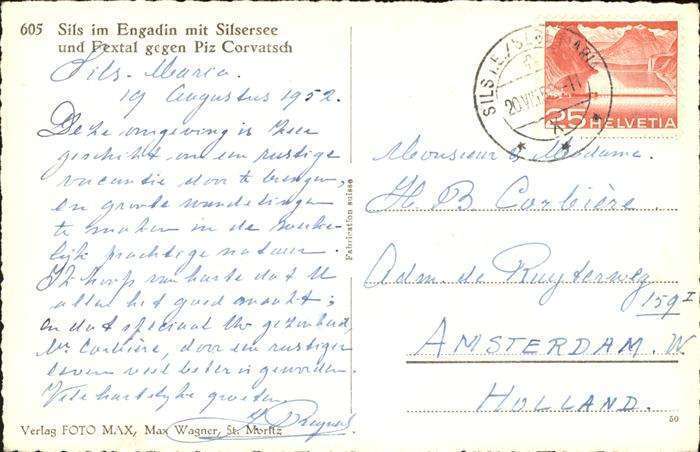 605 Sils im Engadin mit Silsersee
und Fextal gegen Piz Corvatsch
Sils-Maria.
19 Augustus 1952.
Deze omgeving is zeer
geschikt om een rustige
vacantie door te brengen,
en groote wandelingen
te maken in de
lijk prachtige natuur.
Ik hoop van harte dat U
allen het goed maakt;
en dat speciaal Uw gezondheid,
Mr Corbière, door een rustiger
leven veel beter is geworden.
Vele hartelijke groeten
Verlag FOTO MAX, Max Wagner, St. Moritz
Fabrication suisse
SILS
25 HELVETIA
Monsieur & Madame.
H B Corbière.
Adm. de Ruyterweg
159 I
AMSTERDAM. W
HOLLAND.
50